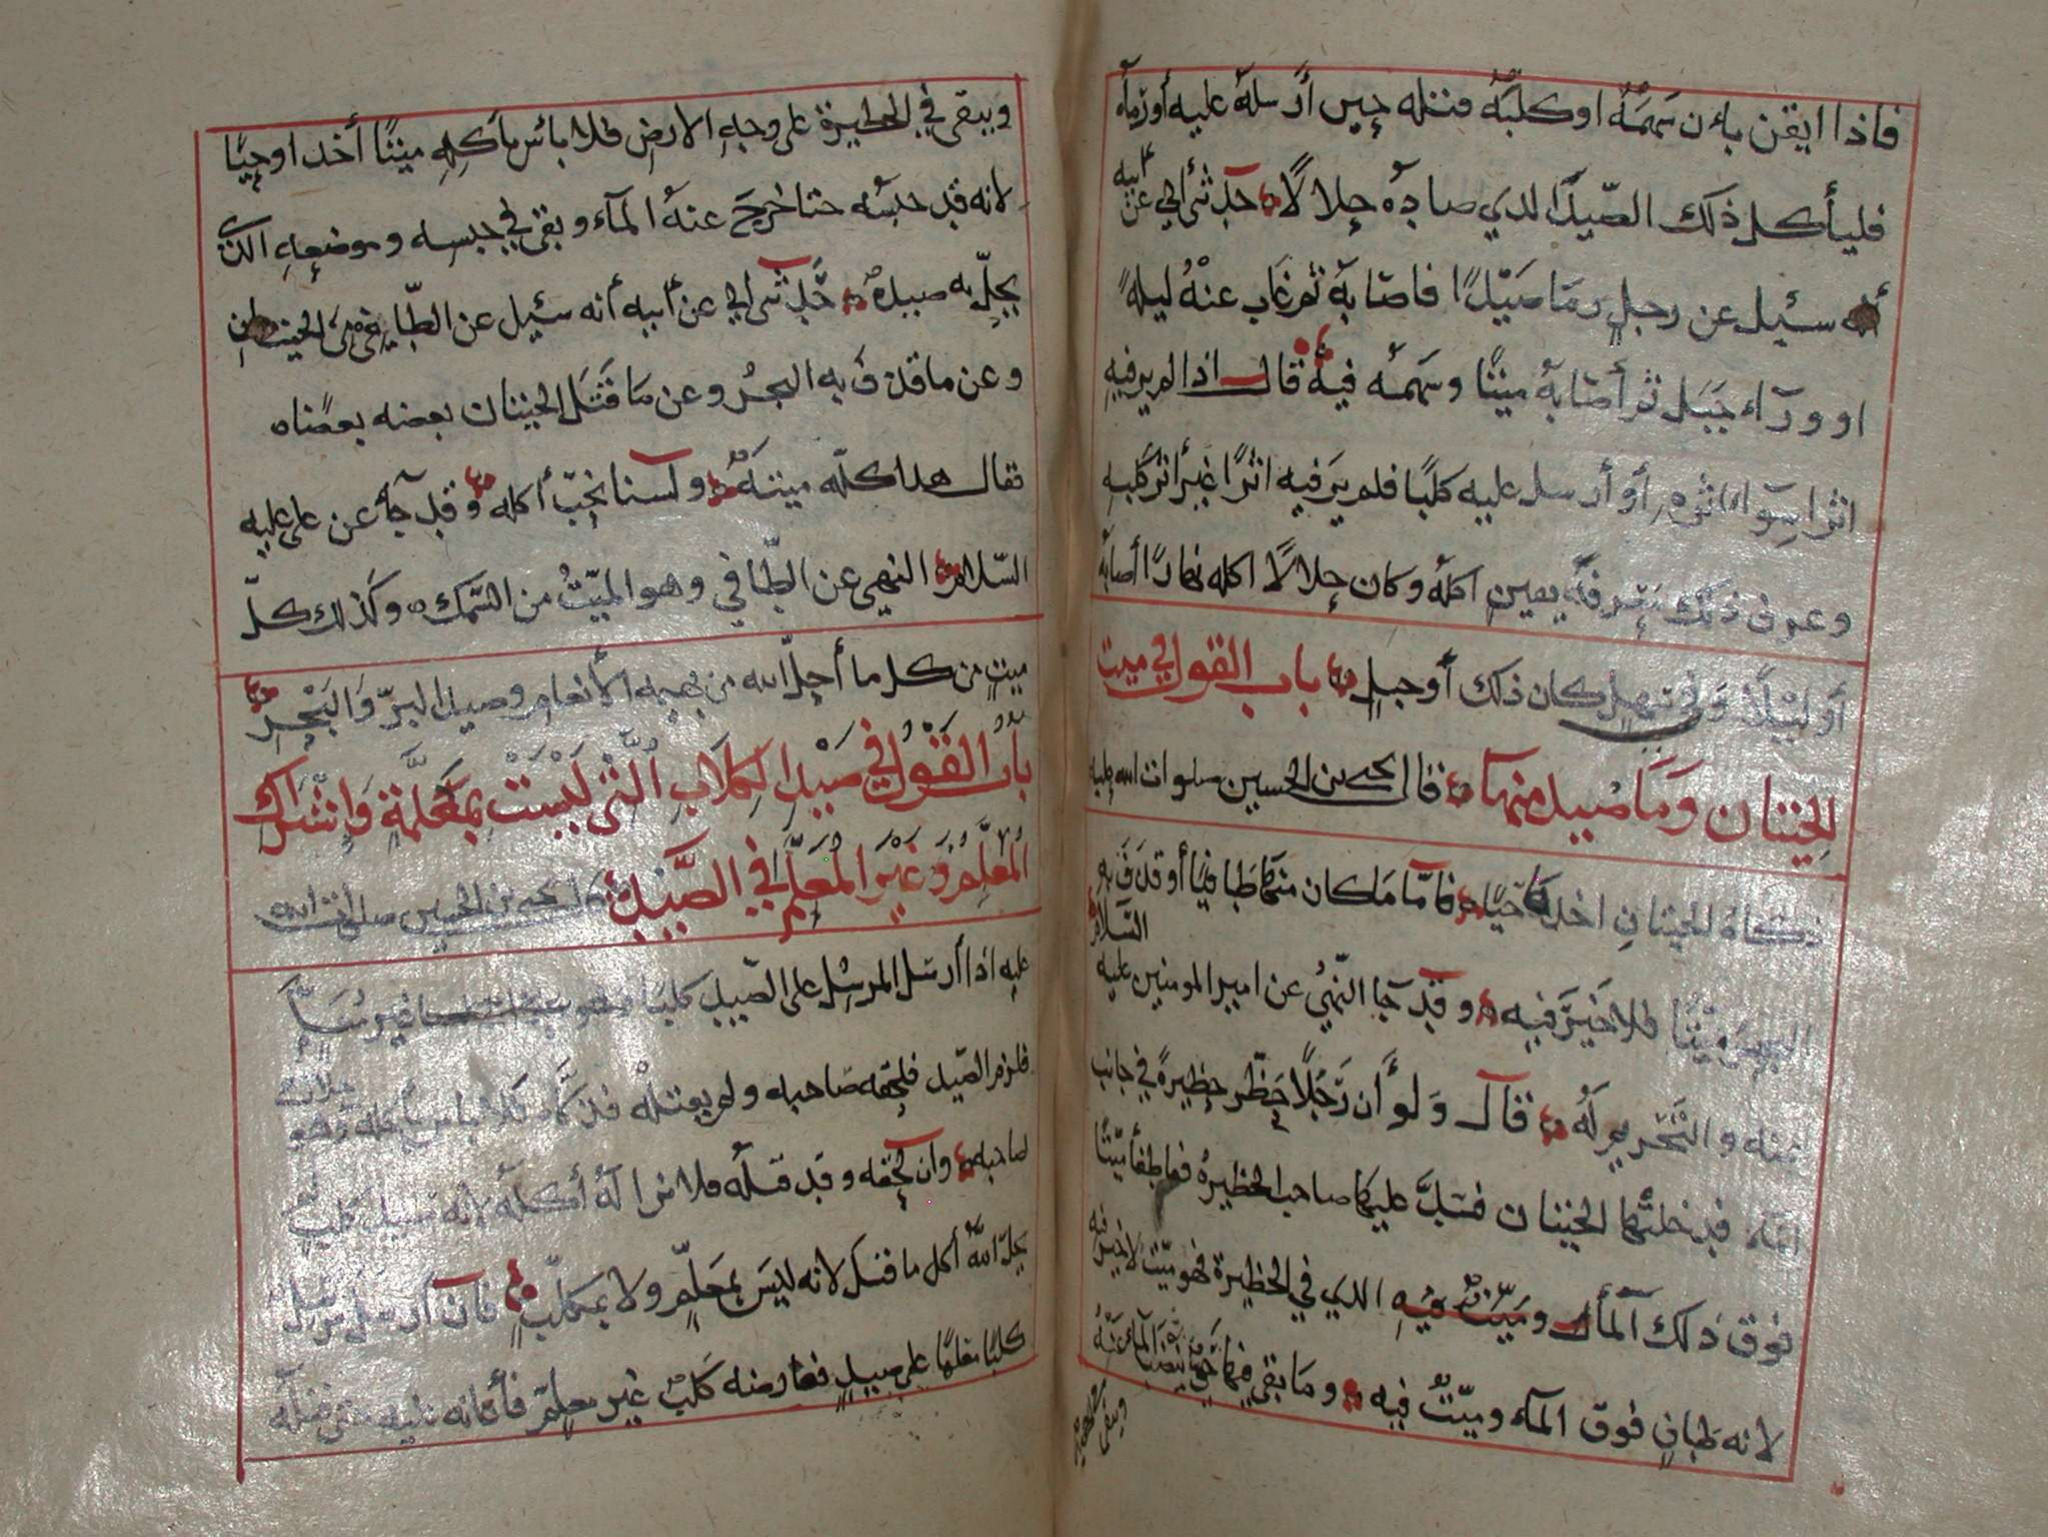 فاذا ايقن بان سهمه او كلبه قتله حين أرسله عليه أو رماه
فليأكل ذلك الصيد الذي صاده حلالًا حدثني ابي عن ابيه
أنه سئيل عن رجل رما صيدًا فاصابه ثم غاب عنه ليلة
او ورآء جبل ثم أصابه ميتًا وسهمه فيه قال اذا لم ير فيه
اثرا سواء اثره أو أرسل عليه كلبًا فلم ير فيه اثرًا غير اثر كلبه
وعرف ذلك معرفة يقين اكله وكان حلالًا اكله نهارًا أصابه
أو ليلًا وفي سهل كان ذلك أو جبل باب القول في ميت
الحيتان وما صيد منها قال يحيى بن الحسين صلوات الله عليه
ذكاة الحيتان اخذها حيًا فاما ما كان منها طافيًا أو قذف به
البحر ميتًا فلا خير فيه وقد جا النهي عن امير المومنين عليه السلام
عنه والتحريم له قال ولو أن رجلًا حظر حظيرة في جانب
فدخلتها الحيتان فسد عليها صاحب الحظيرة فما طفا ميتًا
فوق ذلك المآء وميت فيه الذي في الحظيرة فهو ميت لا خير فيه
لانه طاف فوق المآء وميت فيه وما بقي فيها حتى ينضب المآء عنه
ويبقى
ويبقى في الحظيرة على وجه الارض فلا بأس بأكله ميتًا أخذ او حيًا
لانه قد حبسه حتا خرج عنه المآء وبقي في حبسه وموضعه الذي
يحل به صيده حدثني ابي عن أبيه أنه سئيل عن الطافي من الحيتان
وعن ما قذف به البحر وعن ما قتل الحيتان بعضه بعضًا
فقال هذا كله ميتة ولسنا نحب أكله وقد جآء عن علي عليه
السلام النهي عن الطافي وهو الميت من السمك وكذلك كل
ميت من كل ما أحل الله من بهيمة الأنعام وصيد البر والبحر
باب القول في صيد الكلاب التي ليست بمعلمة واشتراك
المعلم وغير المعلم في الصيد قال يحيى بن الحسين صلوات الله
عليه اذا أرسل المرسل على الصيد كلبًا
فلزم الصيد فلحقه صاحبه ولم يقتله فذكاه فلا باس بأكله وهو حلال
لصاحبه وان لحقه وقد قتله فلا نرا له أكله لانه صيد كلب
يحل الله أكل ما قتل لانه ليس بمعلم ولا بمكلب فان أرسل مرسل
كلبًا معلمًا على صيد فعارضه كلب غير معلم فأعانه عليه حتى قتله